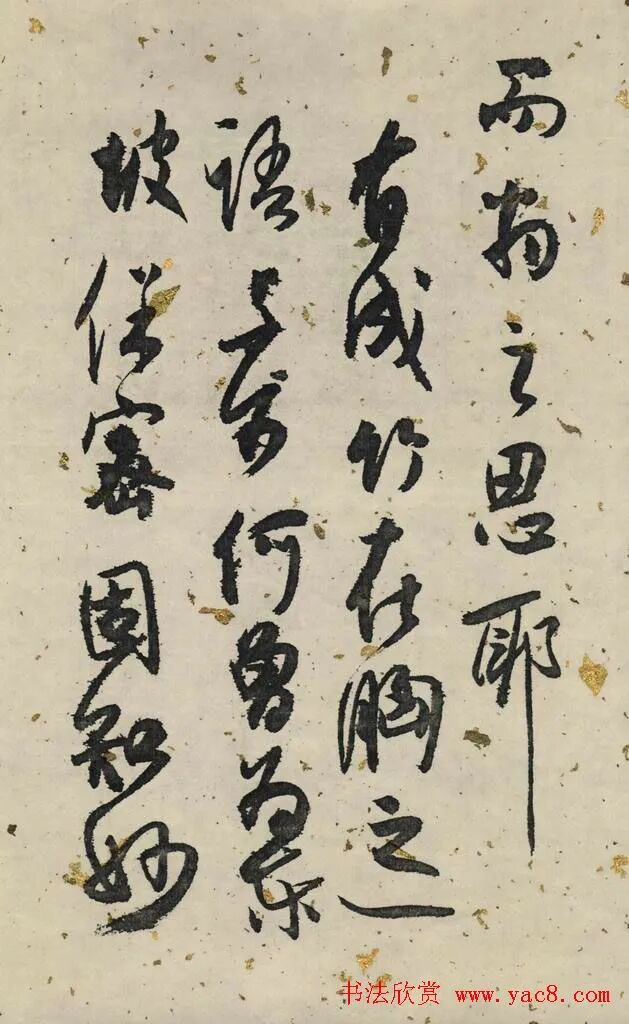 而之思耶
有成竹在胸之
語与何曾为东
坡保密固知妙
书法欣赏 www.yac8.com